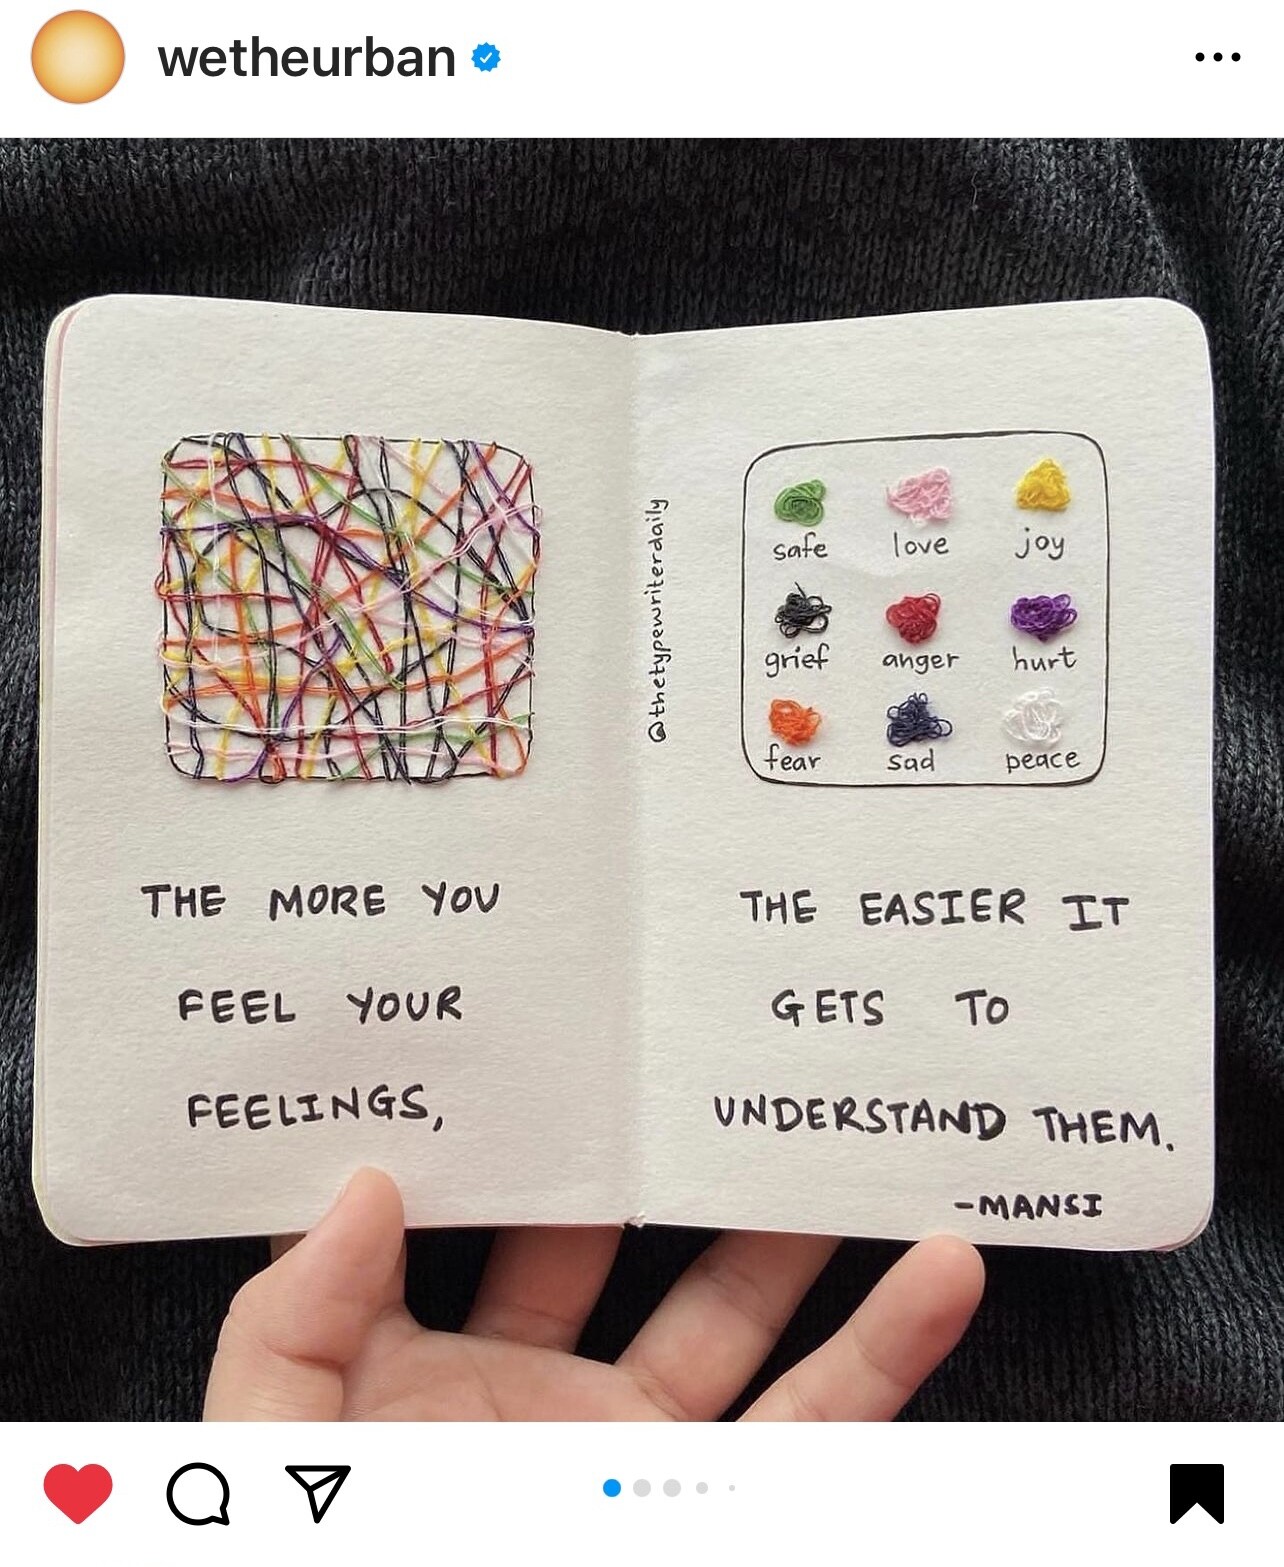 wetheurban
THE MORE YOU
FEEL YOUR
FEELINGS,
@thetypewriterdaily
safe love joy
grief anger hurt
fear sad peace
THE EASIER IT
GETS TO
UNDERSTAND THEM.
-MANSI